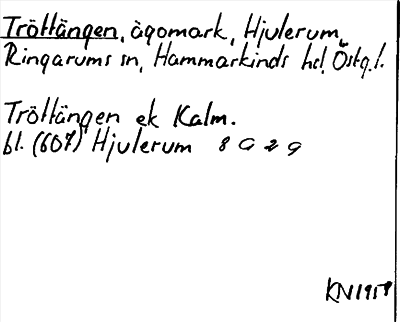 Tröttängen, ägomark, Hjulerum,
Ringarums sn, Hammarkinds hd, Östg.l.
Tröttängen ek Kalm.
bl. (607) Hjulerum 8 G 2 g
KN1959